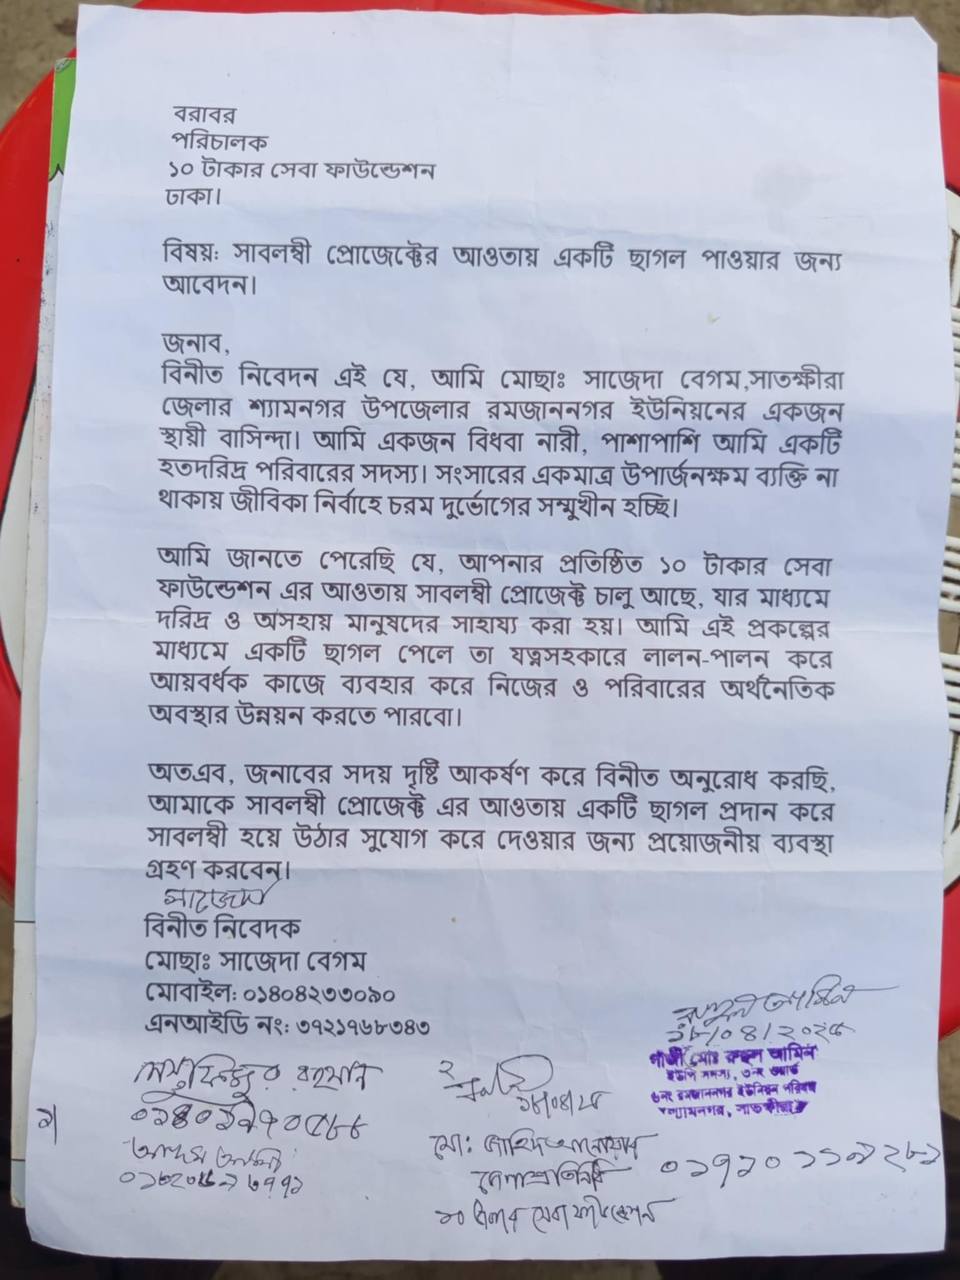 বরাবর
পরিচালক
১০ টাকার সেবা ফাউন্ডেশন
ঢাকা।
বিষয়: সাবলম্বী প্রোজেক্টের আওতায় একটি ছাগল পাওয়ার জন্য
আবেদন।
জনাব,
বিনীত নিবেদন এই যে, আমি মোছাঃ সাজেদা বেগম,সাতক্ষীরা
জেলার শ্যামনগর উপজেলার রমজাননগর ইউনিয়নের একজন
স্থায়ী বাসিন্দা। আমি একজন বিধবা নারী, পাশাপাশি আমি একটি
হতদরিদ্র পরিবারের সদস্য। সংসারের একমাত্র উপার্জনক্ষম ব্যক্তি না
থাকায় জীবিকা নির্বাহে চরম দুর্ভোগের সম্মুখীন হচ্ছি।
আমি জানতে পেরেছি যে, আপনার প্রতিষ্ঠিত ১০ টাকার সেবা
ফাউন্ডেশন এর আওতায় সাবলম্বী প্রোজেক্ট চালু আছে, যার মাধ্যমে
দরিদ্র ও অসহায় মানুষদের সাহায্য করা হয়। আমি এই প্রকল্পের
মাধ্যমে একটি ছাগল পেলে তা যত্নসহকারে লালন-পালন করে
আয়বর্ধক কাজে ব্যবহার করে নিজের ও পরিবারের অর্থনৈতিক
অবস্থার উন্নয়ন করতে পারবো।
অতএব, জনাবের সদয় দৃষ্টি আকর্ষণ করে বিনীত অনুরোধ করছি,
আমাকে সাবলম্বী প্রোজেক্ট এর আওতায় একটি ছাগল প্রদান করে
সাবলম্বী হয়ে উঠার সুযোগ করে দেওয়ার জন্য প্রয়োজনীয় ব্যবস্থা
গ্রহণ করবেন।
সাজেদা
বিনীত নিবেদক
মোছাঃ সাজেদা বেগম
মোবাইল: ০১৪০৪২৩৩০৯০
এনআইডি নং: ৩৭২১৭৬৮৩৪৩
রুহুল আমিন
গাজী মোঃ রুহুল আমিন
ইউপি সদস্য, ৩নং ওয়ার্ড
৬নং রমজাননগর ইউনিয়ন পরিষদ
শ্যামনগর, সাতক্ষীরা
রহমান
১।
২
মো: জাহিদ আনোয়ার
জেলা প্রতিনিধি
১০ টাকার সেবা ফাউন্ডেশন